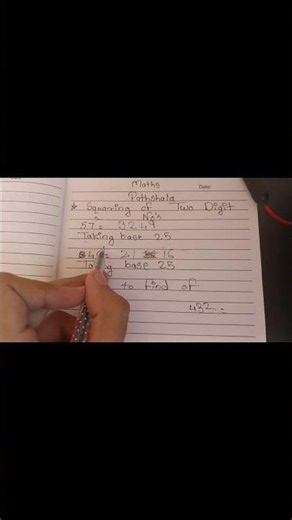 Maths
Date:
Pathshala
* Squaring of Two Digit
No's
57² = 3249
Taking base 25
= 21 16
Taking base 25
to find of
43² =